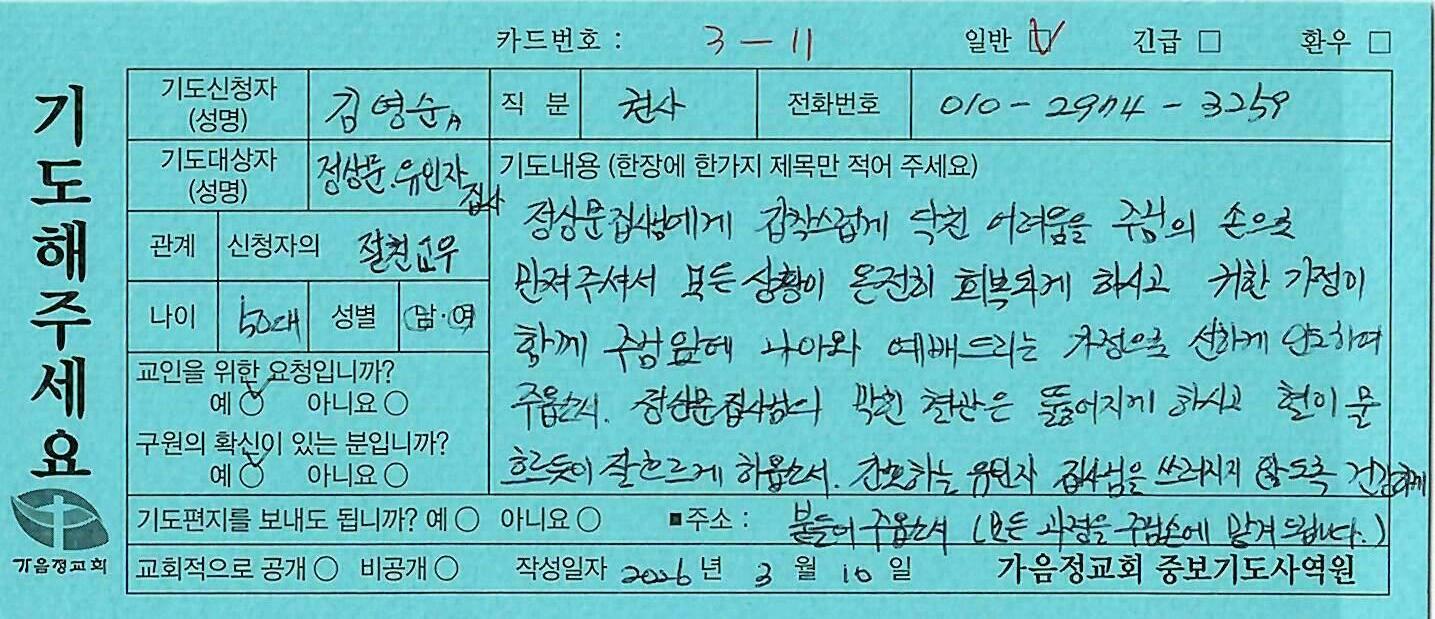 카드번호 : 3 - 11 일반 ☑ 긴급 □ 환우 □
기도해주세요
기도신청자 (성명) 김영순A 직 분 권사 전화번호 010-2974-3259
기도대상자 (성명) 정상문.유인자 집사
관계 신청자의 절친교우
나이 50대 성별 남·여
교인을 위한 요청입니까?
예 ○ 아니요 ○
구원의 확신이 있는 분입니까?
예 ○ 아니요 ○
기도내용 (한장에 한가지 제목만 적어 주세요)
정상문집사님에게 갑작스럽게 닥친 어려움을 주님의 손으로
만져주셔서 모든 상황이 온전히 회복되게 하시고 귀한 가정이
함께 주님앞에 나아와 예배드리는 가정으로 선하게 인도하여
주옵소서. 정상문집사님의 막힌 혈관은 뚫어지게 하시고 혈이 물
흐르듯이 잘흐르게 하옵소서. 간호하는 유인자 집사님을 쓰러지지 않도록 건강하게
붙들어 주옵소서 (모든 과정을 주님손에 맡겨드립니다.)
기도편지를 보내도 됩니까? 예 ○ 아니요 ○ ■주소 :
교회적으로 공개 ○ 비공개 ○ 작성일자 2026 년 3 월 10 일 가음정교회 중보기도사역원
가음정교회